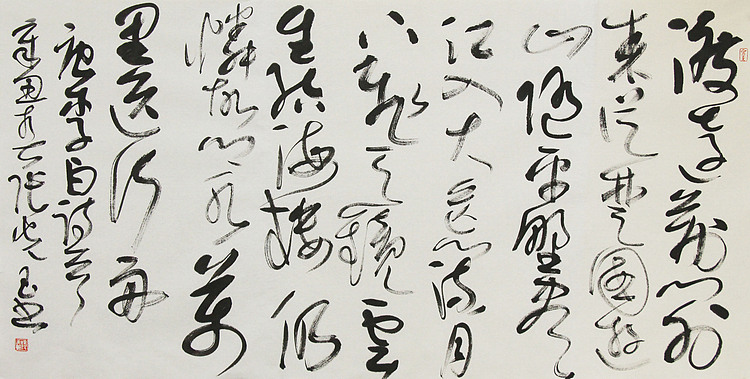 渡遠荊門外
來從楚國遊
山隨平野盡
江入大荒流月
下飛天鏡雲
生結海樓仍
憐故鄉水萬
里送行舟
唐李白詩